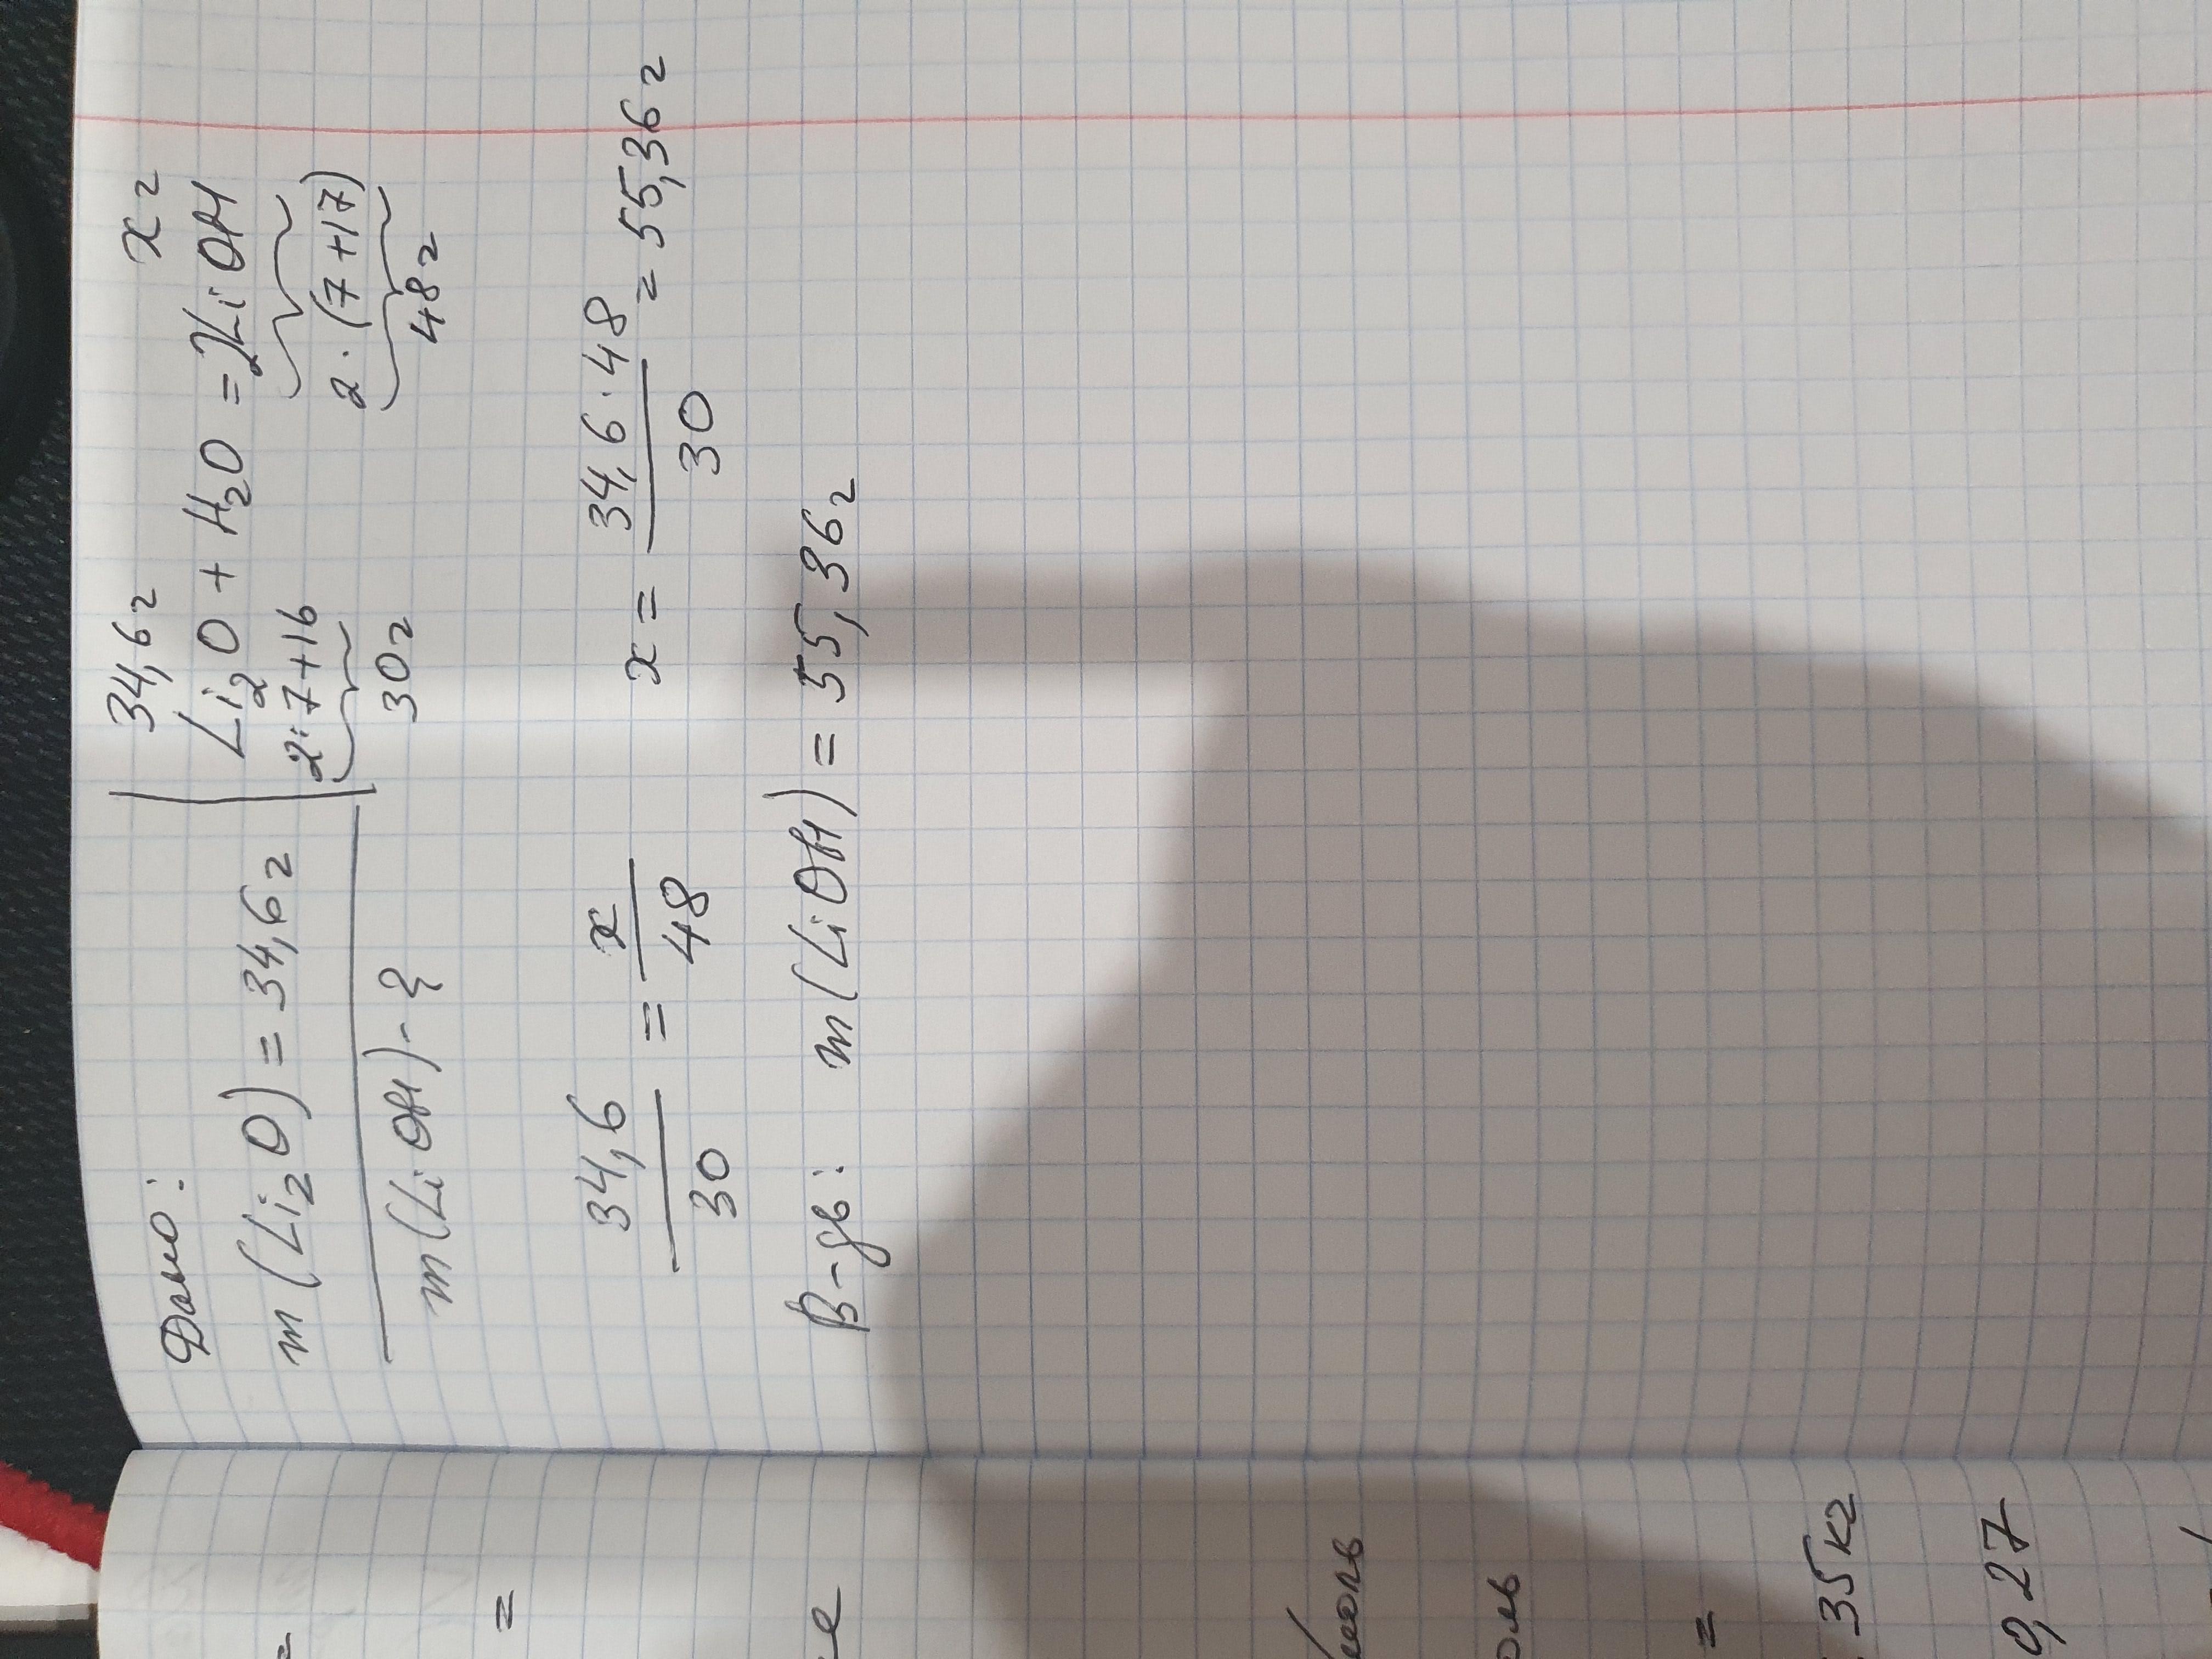 Дано:
m(Li₂O) = 34,6г
m(LiOH) - ?
34,6г xг
Li₂O + H₂O = 2LiOH
2·7+16 2·(7+17)
30г 48г
34,6/30 = x/48 x = 34,6·48/30 = 55,36г
В-дь: m(LiOH) = 55,36г
=
=
35кг
0,27